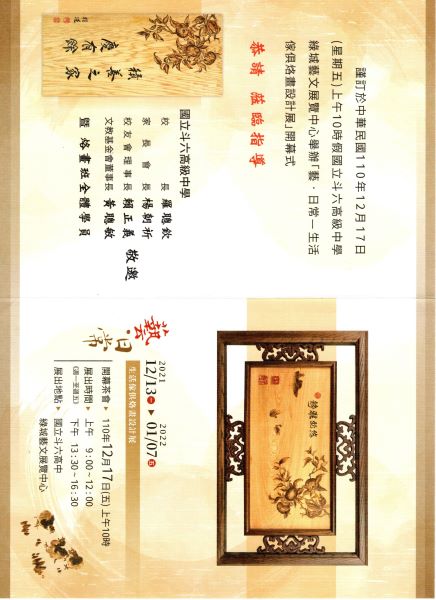 積善之家
慶有餘
謹訂於中華民國110年12月17日
(星期五)上午10時假國立斗六高級中學
綠城藝文展覽中心舉辦「藝・日常－生活
傢俱烙畫設計展」開幕式
恭請 蒞臨指導
國立斗六高級中學
校長 羅聰欽
家長會長 楊朝祈
校友會理事長 賴正義
文教基金會董事長 黃聰敏
暨 烙畫班全體學員
敬邀
藝・日常
生活傢俱烙畫設計展
2021 12/13(一) ▶ 2022 01/07(五)
開幕茶會 ▶ 110年12月17日(五)上午10時
展出時間 ▶ 上午 9:00~12:00
(週一至週五) 下午 13:30~16:30
展出地點 ▶ 國立斗六高中
綠城藝文展覽中心